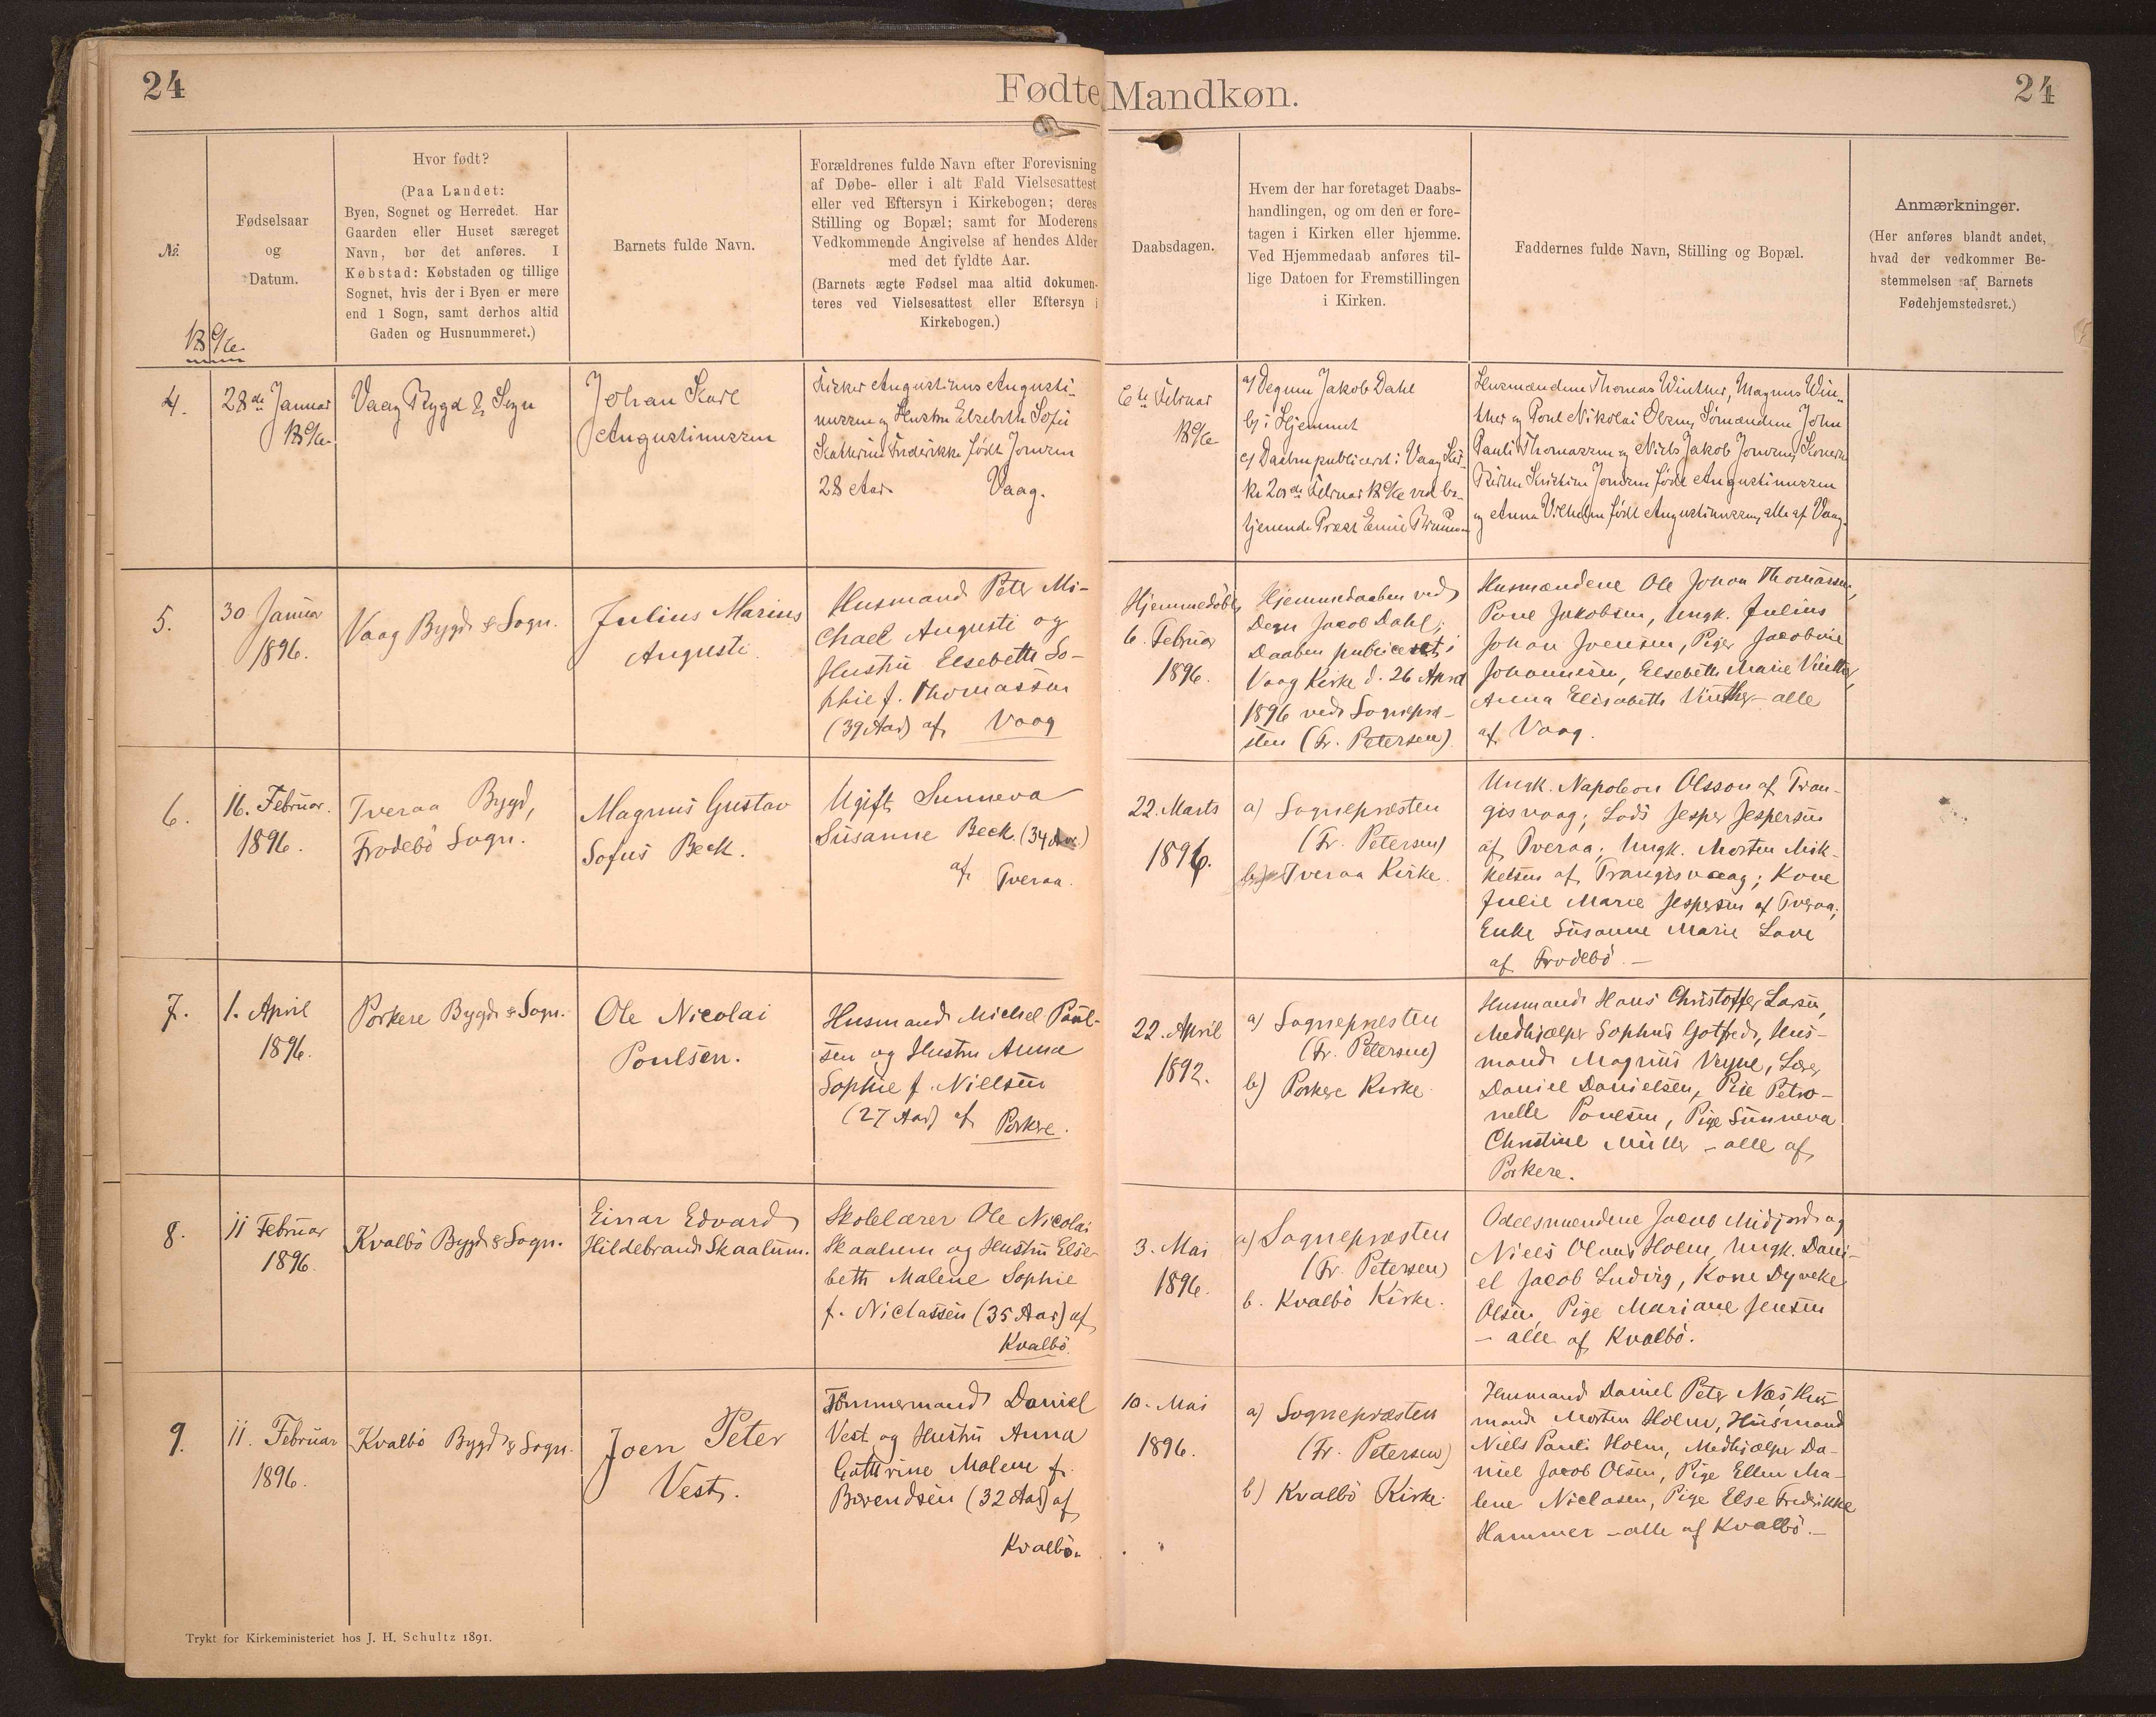 24
Fødte Mandkøn.
24
No.
Fødselsaar
og
Datum.
Hvor født?
(Paa Landet:
Byen, Sognet og Herredet. Har
Gaarden eller Huset særeget
Navn, bør det anføres. I
Købstad: Købstaden og tillige
Sognet, hvis der i Byen er mere
end 1 Sogn, samt derhos altid
Gaden og Husnummeret.)
Barnets fulde Navn.
Forældrenes fulde Navn efter Forevisning
af Døbe- eller i alt Fald Vielsesattest
eller ved Eftersyn i Kirkebogen; deres
Stilling og Bopæl; samt for Moderens
Vedkommende Angivelse af hendes Alder
med det fyldte Aar.
(Barnets ægte Fødsel maa altid dokumen-
teres ved Vielsesattest eller Eftersyn i
Kirkebogen.)
Daabsdagen.
Hvem der har foretaget Daabs-
handlingen, og om den er fore-
tagen i Kirken eller hjemme.
Ved Hjemmedaab anføres til-
lige Datoen for Fremstillingen
i Kirken.
Faddernes fulde Navn, Stilling og Bopæl.
Anmærkninger.
(Her anføres blandt andet,
hvad der vedkommer Be-
stemmelsen af Barnets
Fødehjemstedsret.)
1896.
4.
28de Januar
1896.
Vaag Bygd & Sogn
Johan Karl
Augustinussen
Fisker Augustinus Augusti-
nussen og Hustru Elsebeth Sofie
Katherine Frederikke født Joensen
28 Aar. Vaag.
6te Februar
1896
a) Degnen Jakob Dahl
b) i Hjemmet
c) Daaben publiceret i Vaag Kir-
ke 20de Februar 1896 ved be-
tjenende Præst Emil Bruun
Husmændene Thomas Winther, Magnus Win-
ther og Poul Nikolai Olsen, Sømændene John
Pauli Thomassen og Niels Jakob Joensen, Konerne
Kristine Joensen født Augustinussen
og Anna Vilhelm født Augustinussen, alle af Vaag.
5.
30 Januar
1896.
Vaag Bygd & Sogn.
Julius Marius
Augusti
Husmand Peter Mi-
chael Augusti og
Hustru Elsebeth So-
phie f. Thomassen
(39 Aar) af Vaag
Hjemmedøbt
6. Februar
1896.
Hjemmedaaben ved
Degn Jacob Dahl;
Daaben publiceret i
Vaag Kirke d. 26 April
1896 ved Sognepræ-
sten (Fr. Petersen)
Husmændene Ole Johan Thomassen,
Poul Jakobsen, Ungk. Julius
Johan Joensen, Piger Jacobine
Johannesen, Elsebeth Marie Vinther,
Anna Elisabeth Vinther - alle
af Vaag.
6.
16. Februar.
1896.
Tveraa Bygd,
Frodebö Sogn.
Magnus Gustav
Sofus Beck.
Ugift Sunneva
Susanne Beck. (34 Aar)
af Tveraa.
22. Marts
1896.
a) Sognepræsten
(Fr. Petersen)
b) Tveraa Kirke.
Ungk. Napoleon Olsson af Tran-
gisvaag; Lods Jesper Jespersen
af Tveraa; Ungk. Morten Mik-
kelsen af Trangisvaag; Kone
Julie Marie Jespersen af Tveraa;
Enke Susanne Marie Lave
af Frodebö. -
7.
1. April
1896.
Porkere Bygd & Sogn.
Ole Nicolai
Poulsen.
Husmand Michel Poul-
sen og Hustru Anna
Sophie f. Nielsen
(27 Aar) af Porkere.
22. April
1892.
a) Sognepræsten
(Fr. Petersen)
b) Porkere Kirke
Husmand Hans Christoffer Larsen,
Medhjælper Sophus Gotfred, Hus-
mand Magnus Veyhe, Lærer
Daniel Danielsen, Pige Petro-
nelle Poulsen, Pige Sunneva
Christine Müller - alle af
Porkere.
8.
11 Februar
1896.
Kvalbö Bygd & Sogn.
Einar Edvard
Hildebrand Skaalum.
Skolelærer Ole Nicolai
Skaalum og Hustru Else-
beth Malene Sophie
f. Niclassen (35 Aar) af
Kvalbö.
3. Mai
1896.
a) Sognepræsten
(Fr. Petersen)
b. Kvalbö Kirke.
Odelsmændene Jacob Midjord og
Niels Olaus Holm, Ungk. Dani-
el Jacob Ludvig, Kone Dyveke
Olsen, Pige Mariane Jensen
- alle af Kvalbö.
9.
11. Februar
1896.
Kvalbö Bygd & Sogn.
Joen Peter
Vest.
Tömmermand Daniel
Vest og Hustru Anna
Cathrine Malene f.
Berendsen (32 Aar) af
Kvalbö.
10. Mai
1896.
a) Sognepræsten
(Fr. Petersen)
b) Kvalbö Kirke.
Husmand Daniel Peter Næs, Hus-
mand Morten Holm, Husmand
Niels Pauli Holm, Medhjælper Da-
niel Jacob Olsen, Pige Ellen Ma-
lene Niclasen, Pige Else Fredrikke
Hammer - alle af Kvalbö. -
Trykt for Kirkeministeriet hos J. H. Schultz 1891.